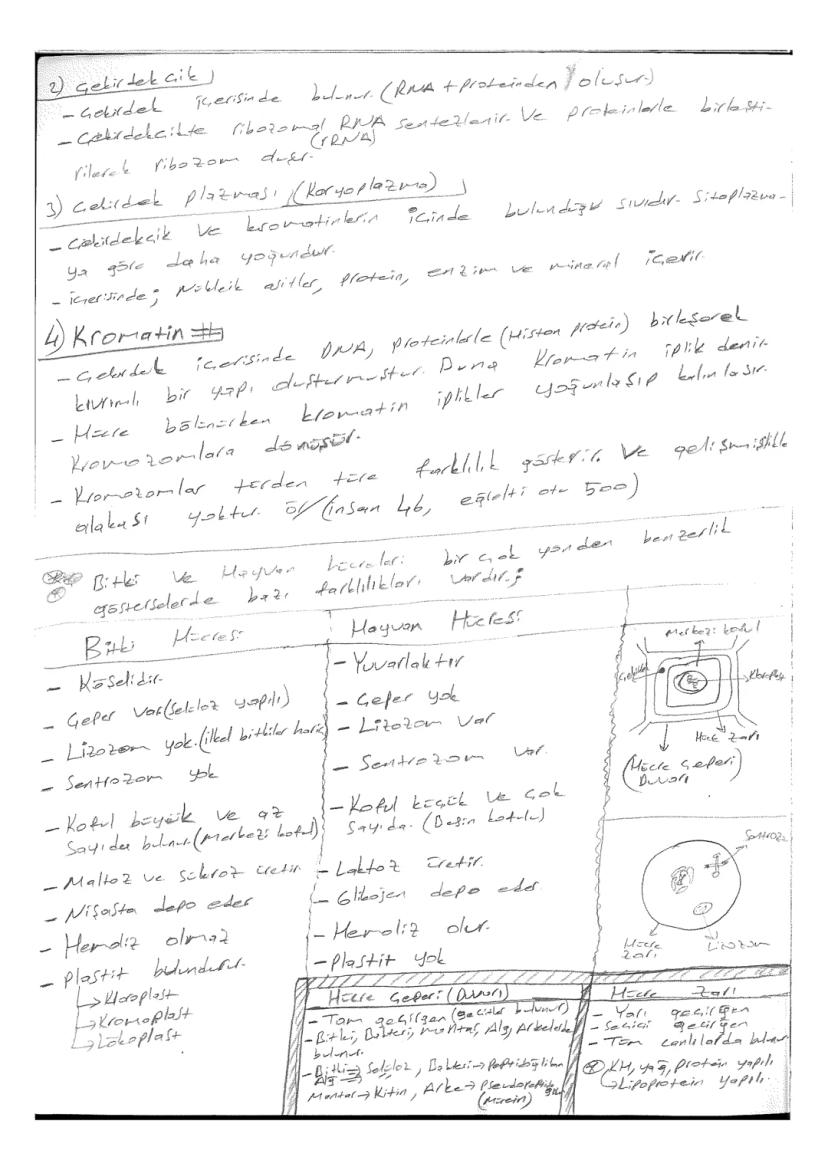 2) Çekirdekcik
- Çekirdek içerisinde bulunur. (RNA + proteinden oluşur.)
- Çekirdekcikte ribozomal RNA sentezlenir. Ve proteinlerle birleşti-
(rRNA)
rilerek ribozom oluşur.
3) Çekirdek plazması (Karyoplazma)
- Çekirdekcik ve kromatinlerin içinde bulunduğu sıvıdır. Sitoplazma-
ya göre daha yoğundur.
- içerisinde; Nükleik asitler, protein, enzim ve mineral içerir.
4) Kromatin
- Çekirdek içerisinde DNA, proteinlerle (Histon protein) birleşerek
kıvrımlı bir yapı oluşturmuştur. Buna Kromatin iplik denir.
- Hücre bölünürken kromatin iplikler yoğunlaşıp kalınlaşır.
Kromozomlara dönüşür.
- Kromozomlar türden türe farklılık gösterir. Ve gelişmişlikle
alakası yoktur. ör/ (insan 46, eğrelti otu 500)
Bitki ve Hayvan hücreleri bir çok yönden benzerlik
gösterselerde bazı farklılıkları vardır.;
Bitki Hücresi
- Köşelidir.
- Çeper var (selüloz yapılı)
- Lizozom yok. (ilkel bitkiler hariç)
- Sentrozom yok
- Koful büyük ve az
sayıda bulunur. (Merkezi koful)
- Maltoz ve sükroz üretir
- Nişasta depo eder
- Hemoliz olmaz
- Plastit bulundurur.
→ Kloroplast
→ Kromoplast
→ Lökoplast
Hayvan Hücresi
- Yuvarlaktır
- Çeper yok
- Lizozom var
- Sentrozom var.
- Koful küçük ve çok
sayıda. (Besin kofulu)
- Laktoz üretir.
- Glikojen depo eder
- Hemoliz olur.
- Plastit yok
Merkezi koful
Çekirdek
Kloroplast
Hücre zarı
(Hücre çeperi)
Duvarı
Sentrozom
Hücre
zarı
Lizozom
Hücre Çeperi (Duvarı)
- Tam geçirgen (geçitler bulunur)
- Bitki, Bakteri, mantar, Alg, Arkelerde
bulunur.
- Bitki → Selüloz, Bakteri → Peptidoglikan
Alg →
Mantar → Kitin, Arke → Pseudopeptidoglikan
(Mürein)
Hücre Zarı
- Yarı geçirgen
- Seçici geçirgen
- Tüm canlılarda bulunur
KH, yağ, protein yapılı
→ Lipoprotein yapılı.